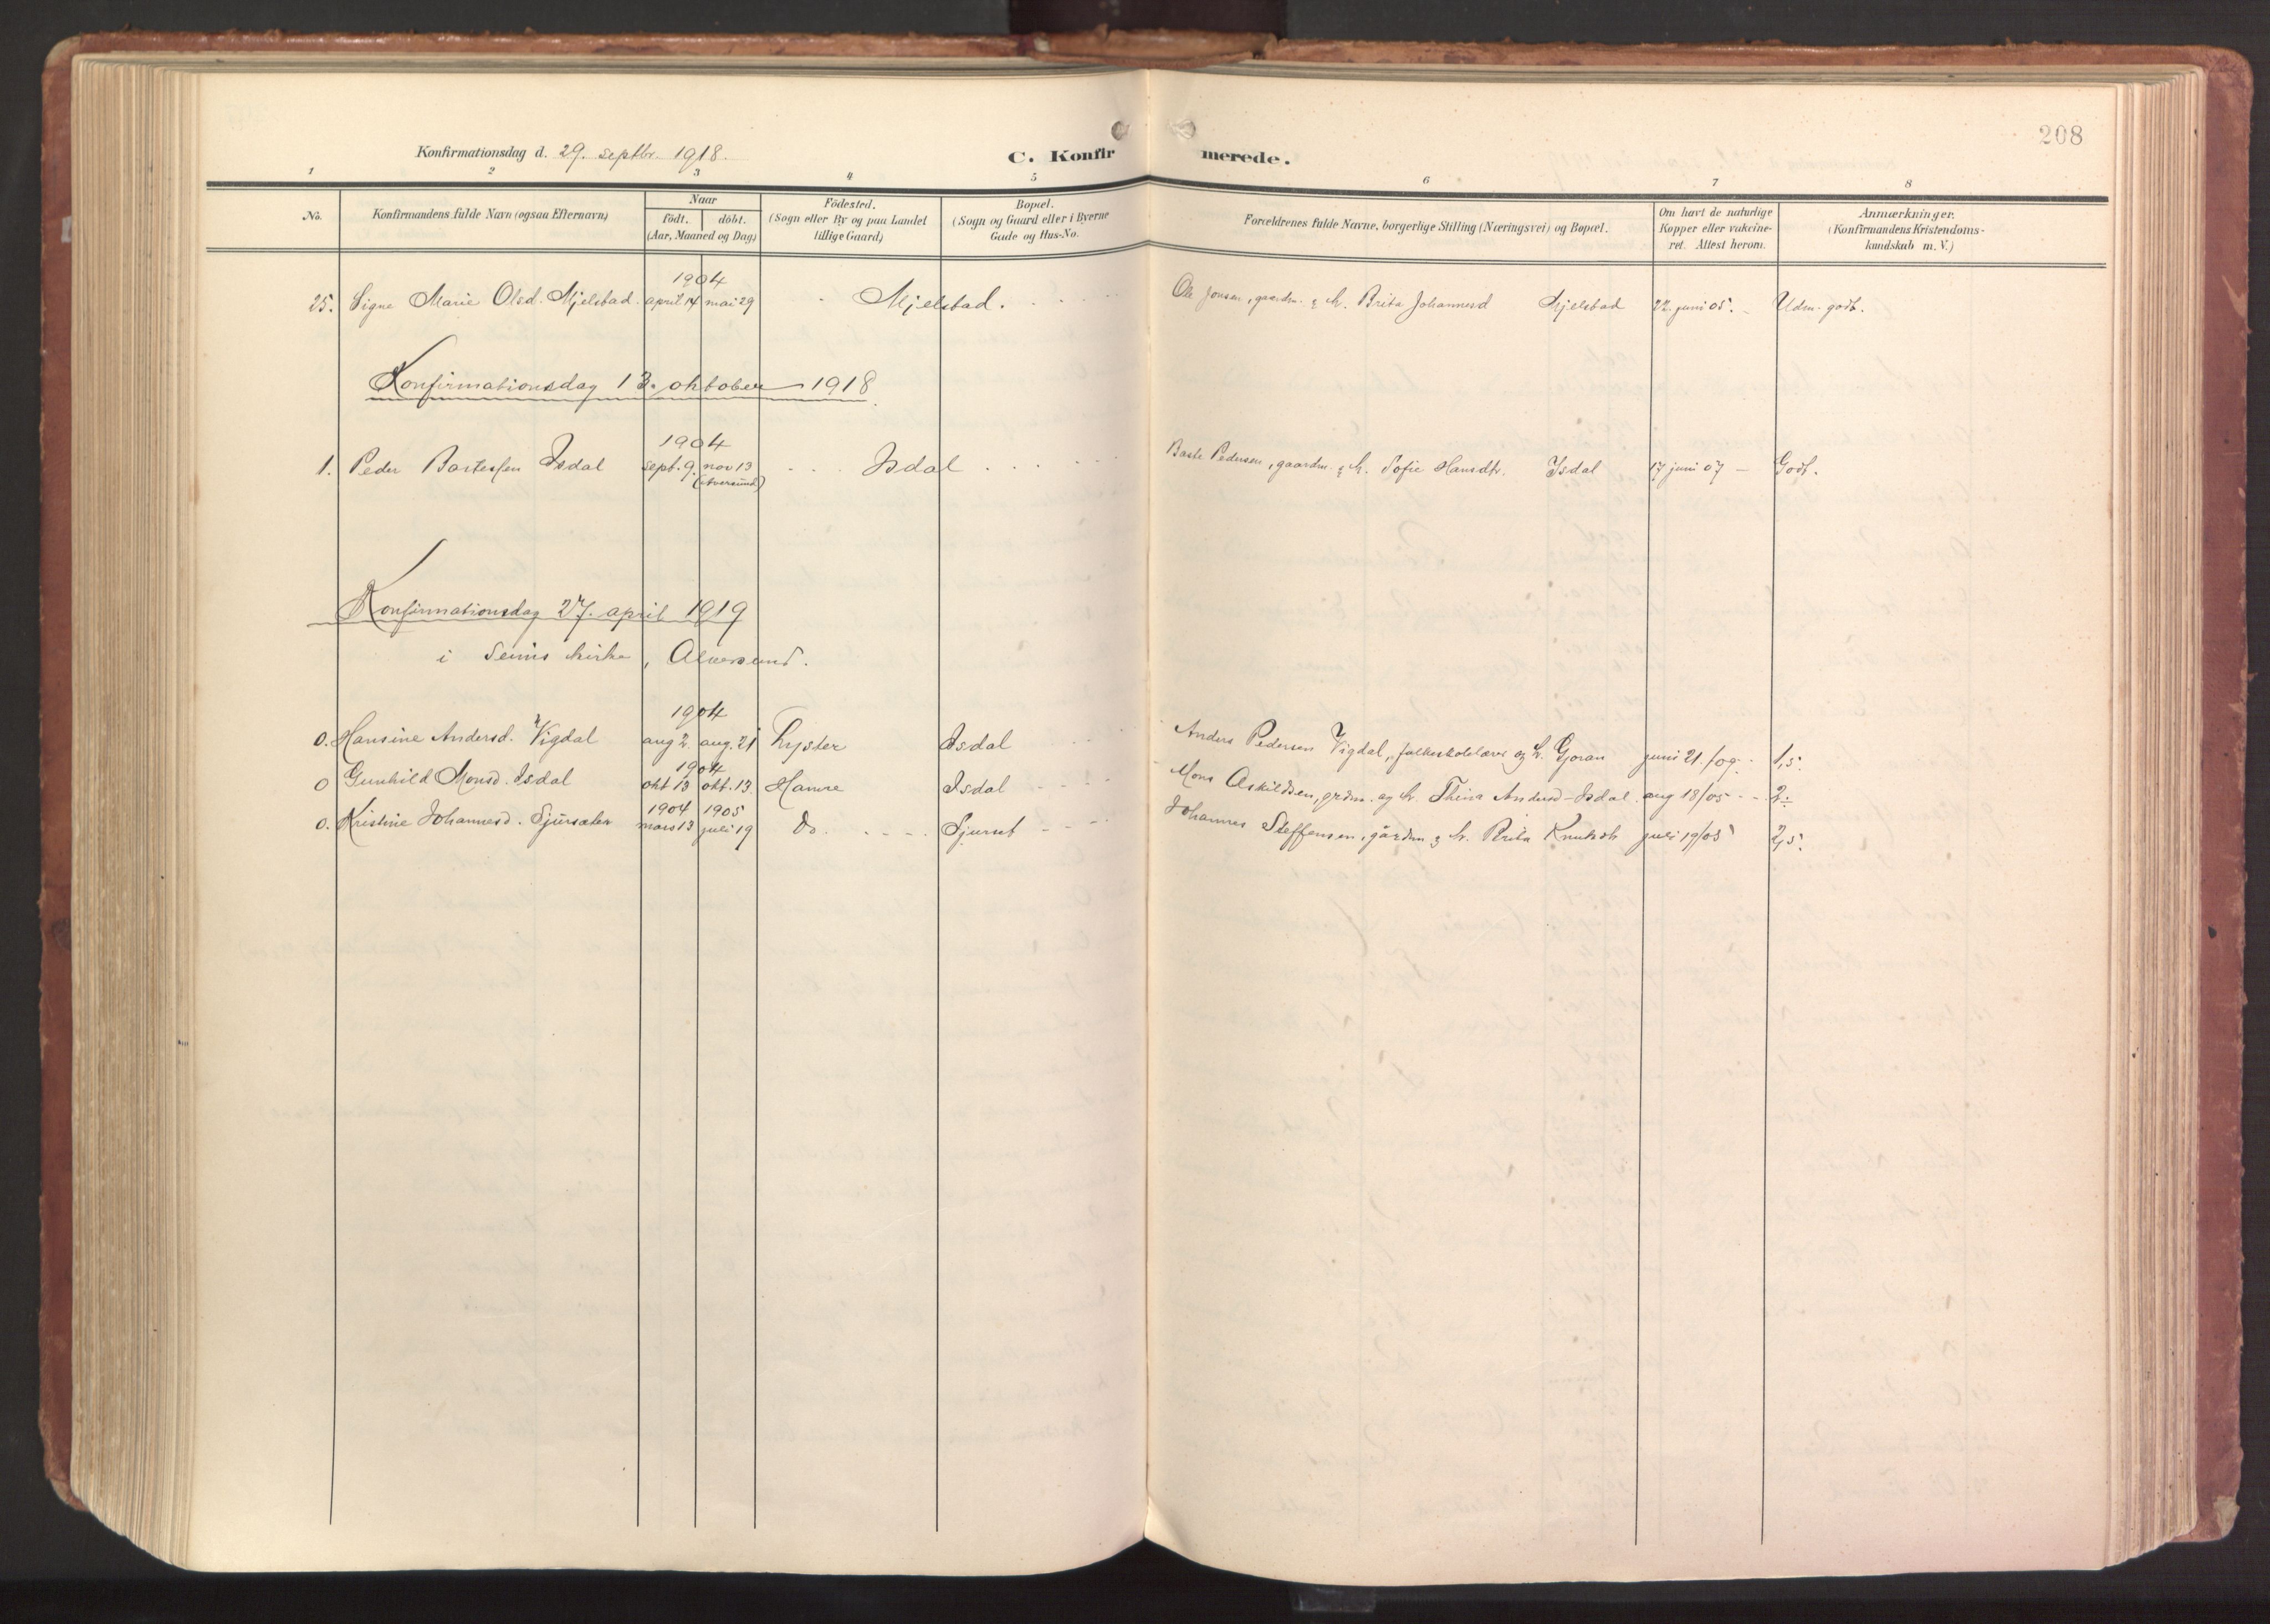 208
Konfirmationsdag d. 29. septbr. 1918. C. Konfir merede.
1 2 3 4 5 6 7 8
No. Konfirmandens fulde Navn (ogsaa Efternavn) Naar født. døbt. (Aar, Maaned og Dag) Fødested. (Sogn eller By og paa Landet tillige Gaard) Bopæl. (Sogn og Gaard eller i Byerne Gade og Hus-No. Forældrenes fulde Navne, borgerlige Stilling (Næringsvei) og Bopæl. Om havt de naturlige Kopper eller vakcineret. Attest herom. Anmærkninger. (Konfirmandens Kristendomskundskab m. V.)
1904
25. Signe Marie Olsd. Mjelstad. april 14 mai 29 Mjelstad. Ole Jonsen, gaardm. & h. Brita Johannesd Mjelstad 22. juni 05. Udm. godt.
Konfirmationsdag 13. oktober 1918
1904
1. Peder Bastessen Isdal sept. 9. nov 13 Isdal Baste Pedersen, gaardm. & h. Sofie Hansdtr. Isdal 17 juni 07 — Godt.
(Alversund)
Konfirmationsdag 27. april 1919
i Seims kirke, Alversund.
1904
0. Hansine Andersd. Vigdal aug 2. aug. 21 Lyster Isdal Anders Pedersen Vigdal, folkeskolelærer og h. Gjøran juni 21./09. 1,5.
1904
0 Gunhild Monsd. Isdal okt 13 okt. 13. Hamre Isdal Mons Askildsen, grdm. og h. Thina Andersd - Isdal. aug 18/05 - - 2 ÷
1904 1905
0. Kristine Johannesd. Sjursæter mars 13 juli 19 Do. Sjurset Johannes Steffensen, gårdm & h. Brita Knutsdtr juli 19/05 2,5.